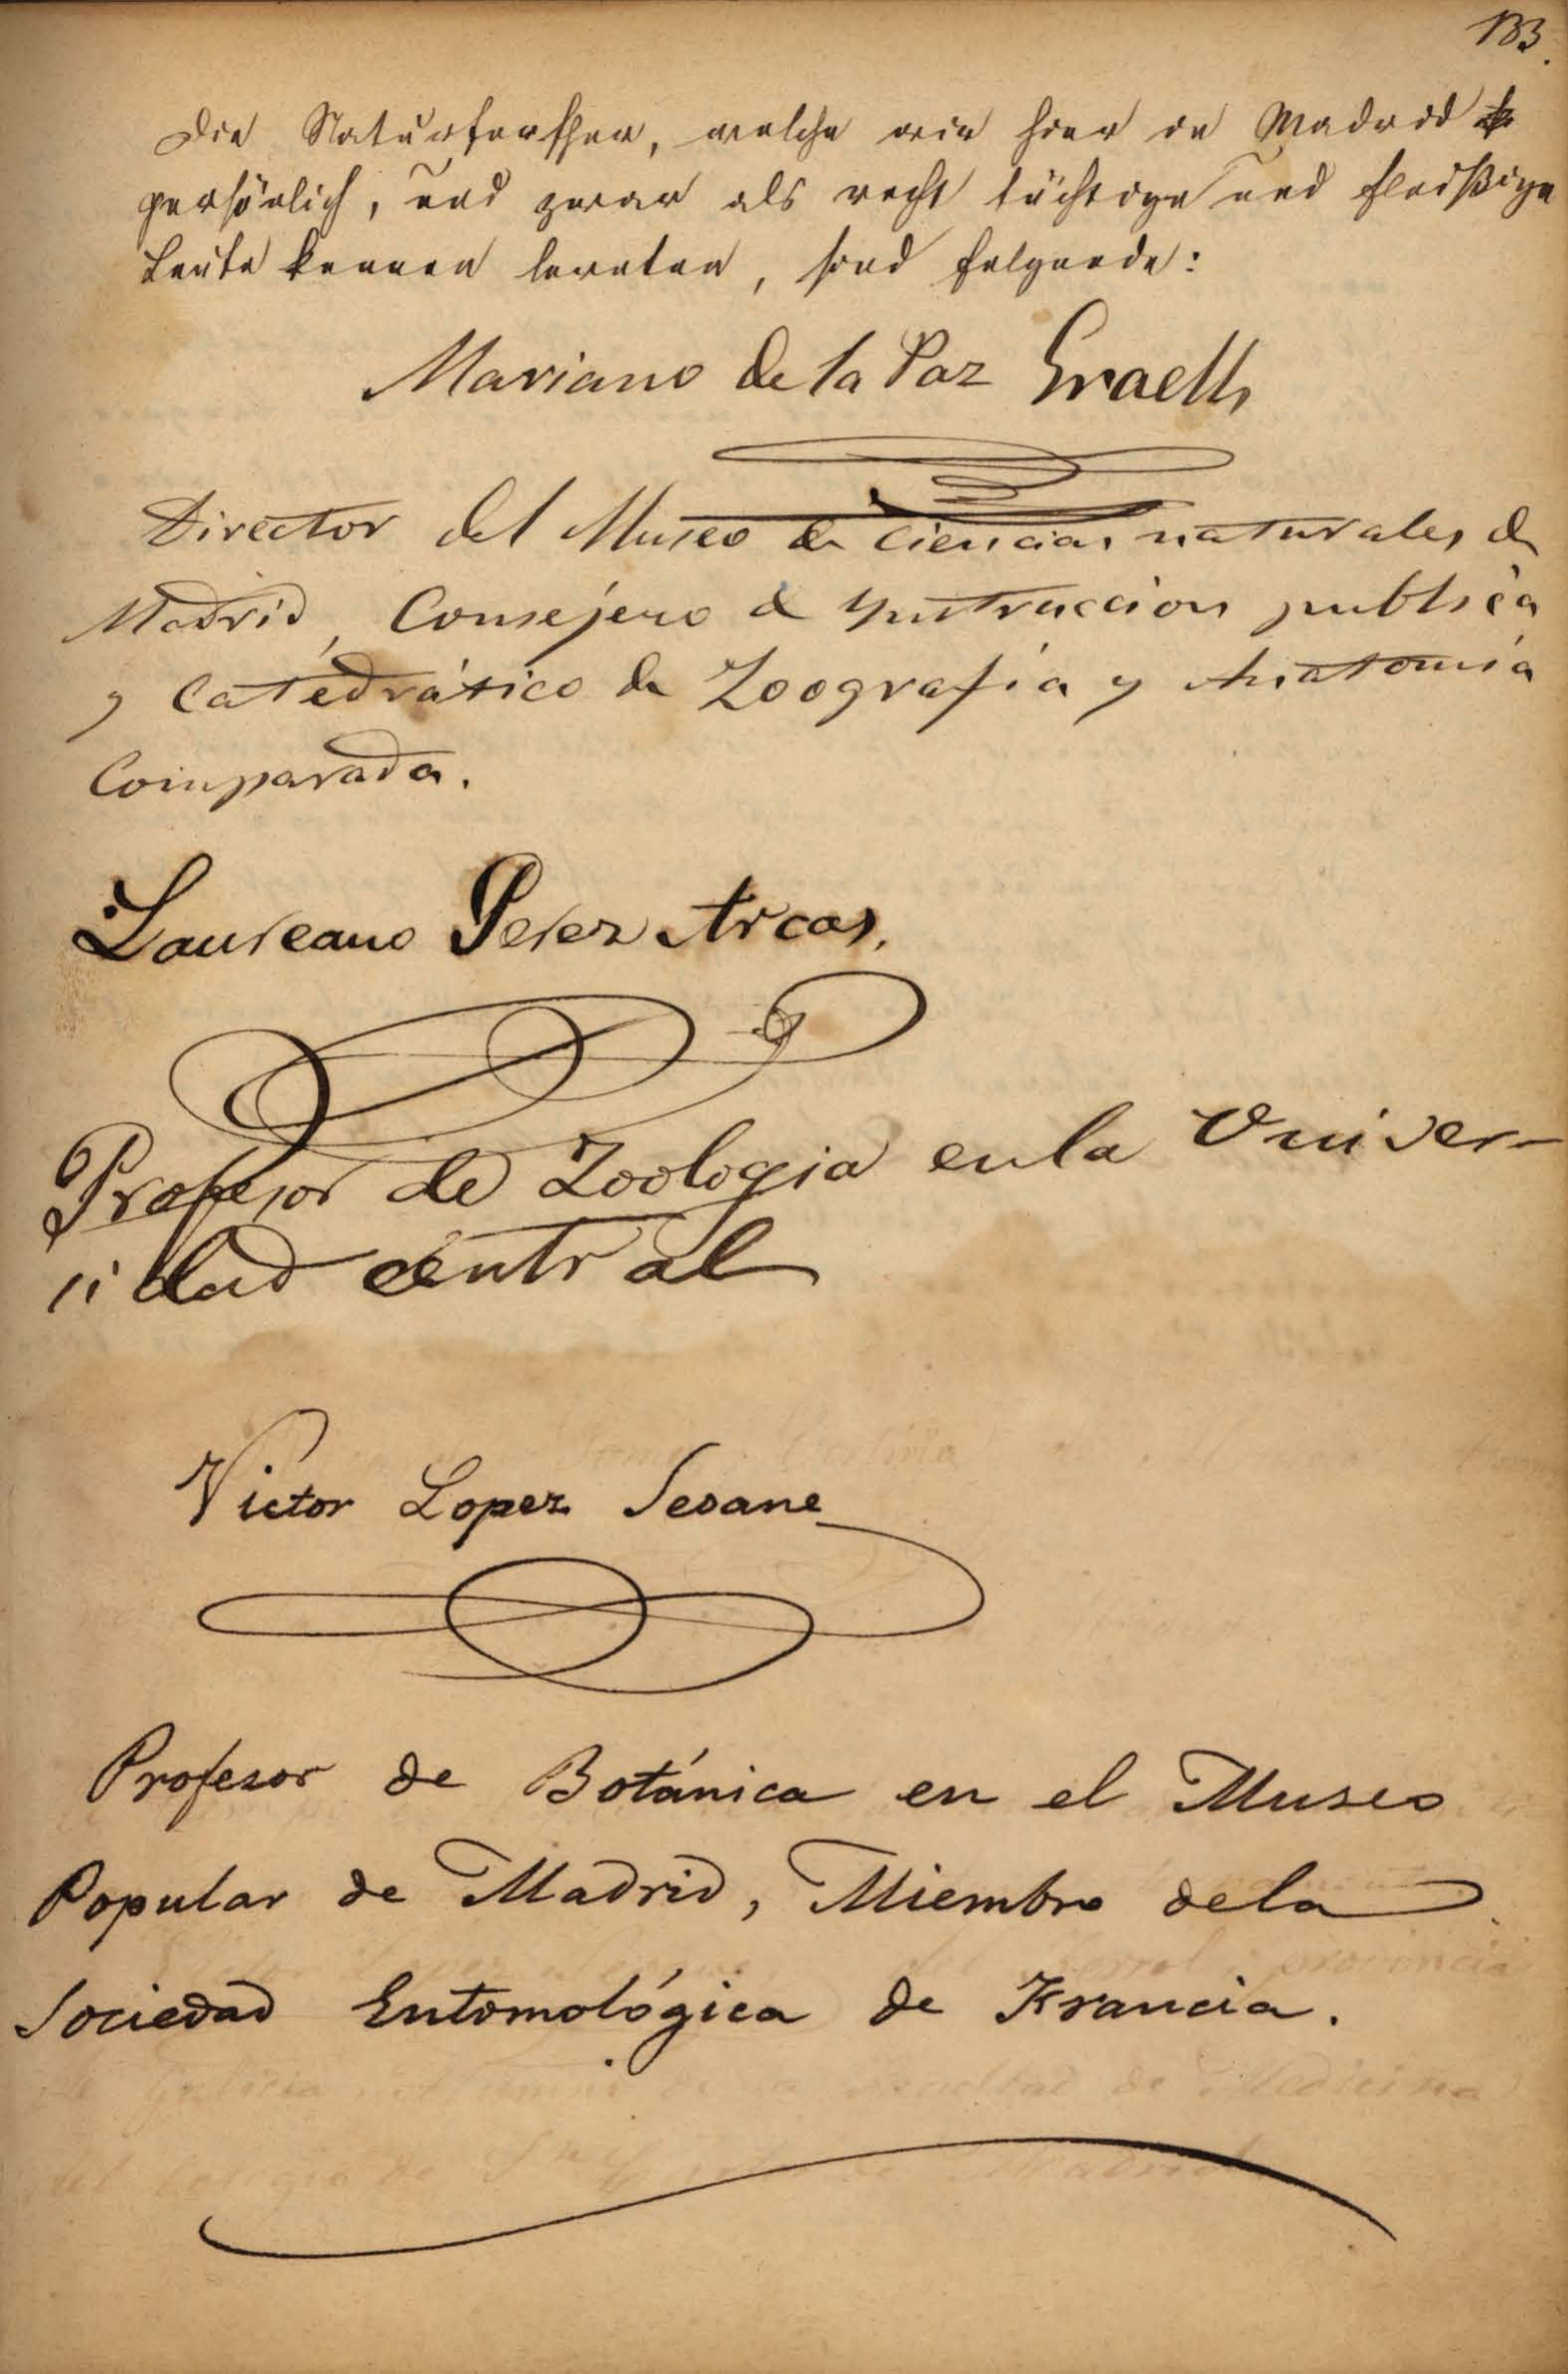 133.
Die Naturforscher, welche wir hier in Madrid
persönlich, und zwar als recht tüchtige und fleißige
Leute kennen lernten, sind folgende:
Mariano de la Paz Graells
Director del Museo de Ciencias naturales de
Madrid, Consejero de Ynstruccion publica
y Catédrático de Zoografía y Anatomía
Comparada.
Laureano Perez Arcas.
Profesor de Zoologia en la Univer-
sidad central
Victor Lopez Seoane
Profesor de Botánica en el Museo
Popular de Madrid, Miembro de la
Sociedad Entomológica de Francia.